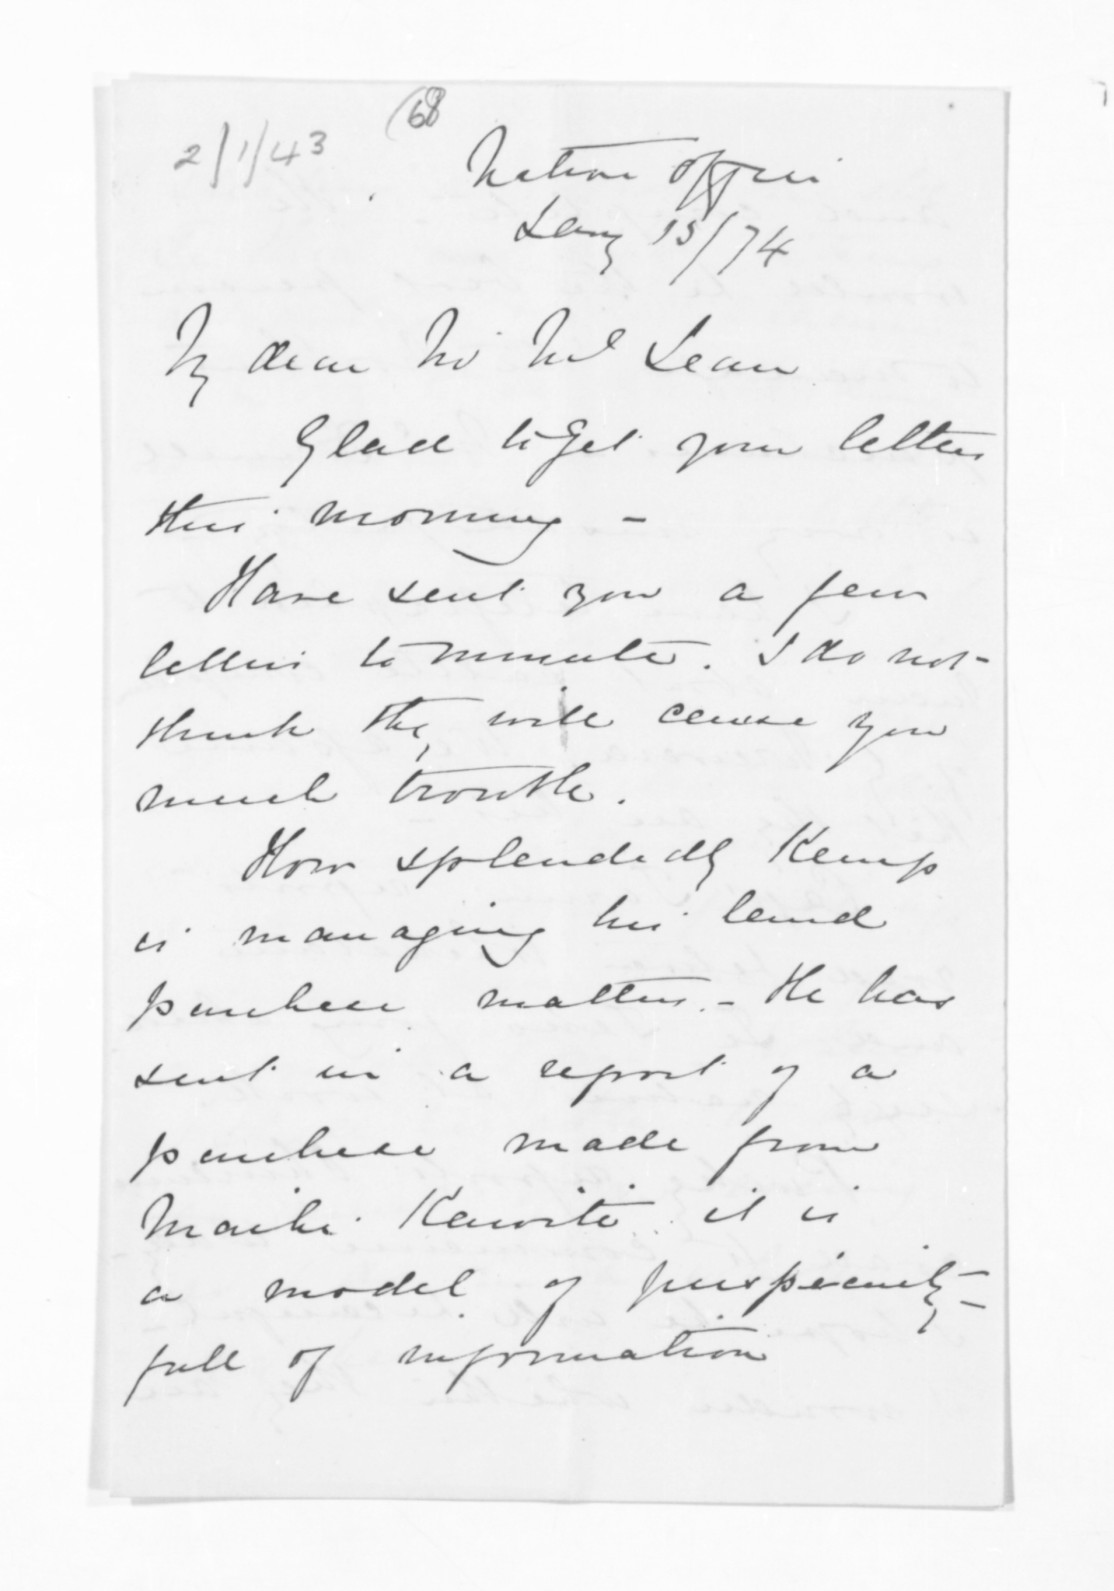 (68
2/1/43
Native Office
Jany 15/74
My dear Mr McLean
Glad to get your letters
this morning –
Have sent you a few
letters to minute. I do not
think they will cause you
much trouble.
How splendidly Kemp
is managing his land
purchase matters. – He has
sent in a report of a
purchase made from
Maihi Kawiti it is
a model of perspicuity –
full of information